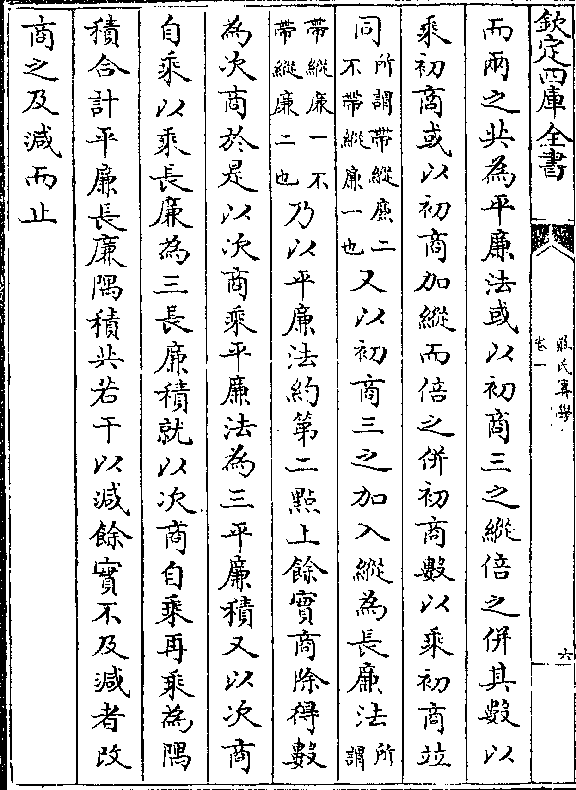 欽定四庫全書
數氏算學
卷一
六
而兩之共為平廉法或以初商三之縱倍之併其數以
乘初商或以初商加縱而倍之併初商數以乘初商並
同所謂帶縱廉二不帶縱廉一也又以初商三之加入縱為長廉法所謂
帶縱廉一不帶縱廉二也乃以平廉法約第二點上餘實商除得數
為次商於是以次商乘平廉法為三平廉積又以次商
自乘以乘長廉為三長廉積就以次商自乘再乘為隅
積合計平廉長廉隅積共若干以減餘實不及減者改
商之及減而止